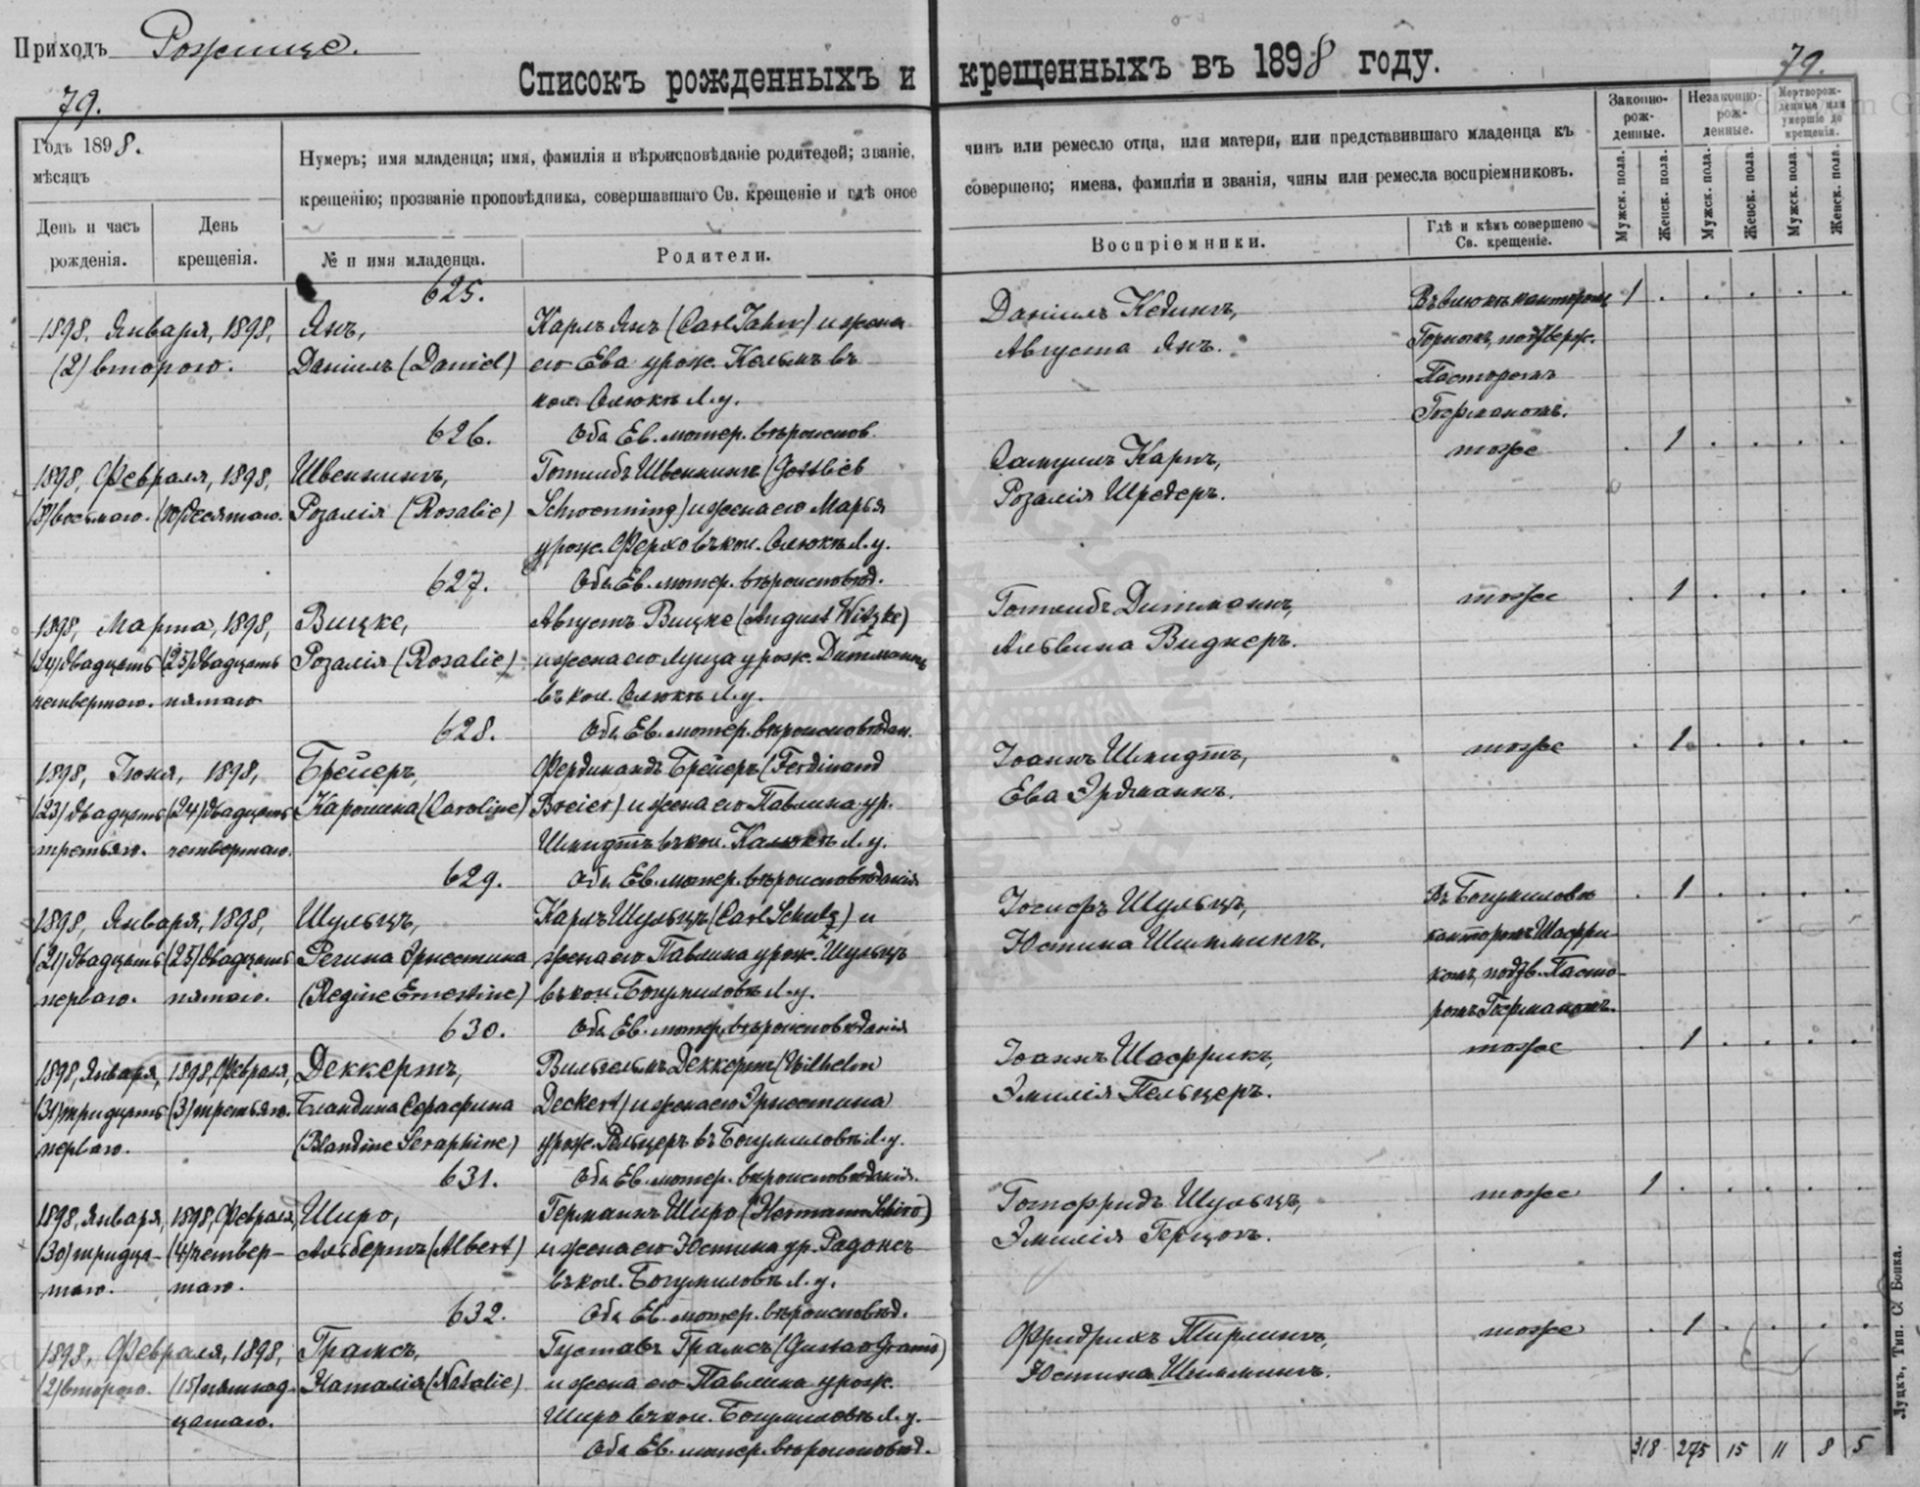 Приходъ Рожище.
Списокъ рожденныхъ и крещенныхъ въ 1898 году.
79.
79.
Годъ 1898.
мѣсяцъ
День и часъ рожденія.
День крещенія.
Нумеръ; имя младенца; имя, фамилія и вѣроисповѣданіе родителей; званіе,
крещенію; прозваніе проповѣдника, совершавшаго Св. крещеніе и гдѣ оное
№ и имя младенца.
Родители.
чинъ или ремесло отца, или матери, или представившаго младенца къ
совершено; имена, фамиліи и званія, чины или ремесла воспріемниковъ.
Воспріемники.
Гдѣ и кѣмъ совершено Св. крещеніе.
Законно-рож-денные.
Незаконно-рож-денные.
Мертворож-денные или умершіе до крещенія.
Мужск. пола.
Женск. пола.
Мужск. пола.
Женск. пола.
Мужск. пола.
Женск. пола.
625.
1898, Января, 1898,
(2) второго.
Янъ,
Даніилъ (Daniel)
Карлъ Янъ (Carl Jahn) и жена
его Ева урож. Кельмъ въ
кол. Олюкѣ Л.у.
Оба Ев. лютер. вѣроиспов.
Даніилъ Кединъ,
Августа Янъ.
канторомъ
подтверж.
Пасторомъ
Гофманомъ.
1
626.
1898, Февраля, 1898,
(8) восьмого. (10) десятаго.
Швеннингъ,
Розалія (Rosalie)
Готлибъ Швеннингъ (Gottlieb
Schwenning) и жена его Марья
урож. Ферхо въ кол. Олюкѣ Л.у.
Оба Ев. лютер. вѣроисповѣд.
Самуилъ Карпъ,
Розалія Шредеръ.
тоже
1
627.
1898, Марта, 1898,
(24) двадцать (25) двадцать
четвертаго. пятаго
Вицке,
Розалія (Rosalie)
Августъ Вицке (August Witzke)
и жена его Луиза урож. Дитманъ
въ кол. Олюкѣ Л.у.
Оба Ев. лютер. вѣроисповѣдан.
Готлибъ Дитманъ,
Альвина Виднеръ.
тоже
1
628.
1898, Іюня, 1898,
(23) двадцать (24) двадцать
третьяго. четвертаго.
Брейеръ,
Каролина (Caroline)
Фердинандъ Брейеръ (Ferdinand
Breier) и жена его Павлина ур.
Шмидтъ въ кол. Л.у.
Оба Ев. лютер. вѣроисповѣданія
Іоаннъ Шмидтъ,
Ева Эрдманнъ.
тоже
1
629.
1898, Января, 1898,
(21) двадцать (25) двадцать
перваго. пятаго.
Шульцъ,
Регина Эрнестина
(Regine Ernestine)
Карлъ Шульцъ (Carl Schulz) и
жена его Павлина урож. Шульцъ
въ кол. Богумиловкѣ Л.у.
Оба Ев. лютер. вѣроисповѣданія
Іосифъ Шульцъ,
Юстина Шиммингъ.
Въ Богумиловкѣ
канторомъ Шаффри-
комъ, подтв. Пасто-
ромъ Гофманомъ.
1
630.
1898, Января, 1898, Февраля,
(31) тридцать (3) третьяго.
перваго.
Деккертъ,
Бландина Серафина
(Blandine Seraphine)
Вильгельмъ Деккертъ (Wilhelm
Deckert) и жена его Эрнестина
урож. Пельцеръ въ Богумиловкѣ Л.у.
Оба Ев. лютер. вѣроисповѣданія.
Іоаннъ Шаффрикъ,
Эмилія Пельцеръ.
тоже
1
631.
1898, Января, 1898, Февраля,
(30) тридца- (4) четвер-
таго. таго.
Широ,
Альбертъ (Albert)
Германнъ Широ (Hermann Schiro)
и жена его Юстина ур. Радонсъ
въ кол. Богумиловкѣ Л.у.
Оба Ев. лютер. вѣроисповѣд.
Готфридъ Шульцъ,
Эмилія Герцогъ.
тоже
1
632.
1898, Февраля, 1898,
(2) второго. (15) пятнад-
цатаго.
Грамсъ,
Наталія (Natalie)
Густавъ Грамсъ (Gustav Grams)
и жена его Павлина урож.
Широ въ кол. Богумиловкѣ Л.у.
Оба Ев. лютер. вѣроисповѣд.
Фридрихъ Тирлингъ,
Юстина Шиммингъ.
тоже
1
318 275 15 11 8 5
Луцкъ, Тип. С. Бонка.